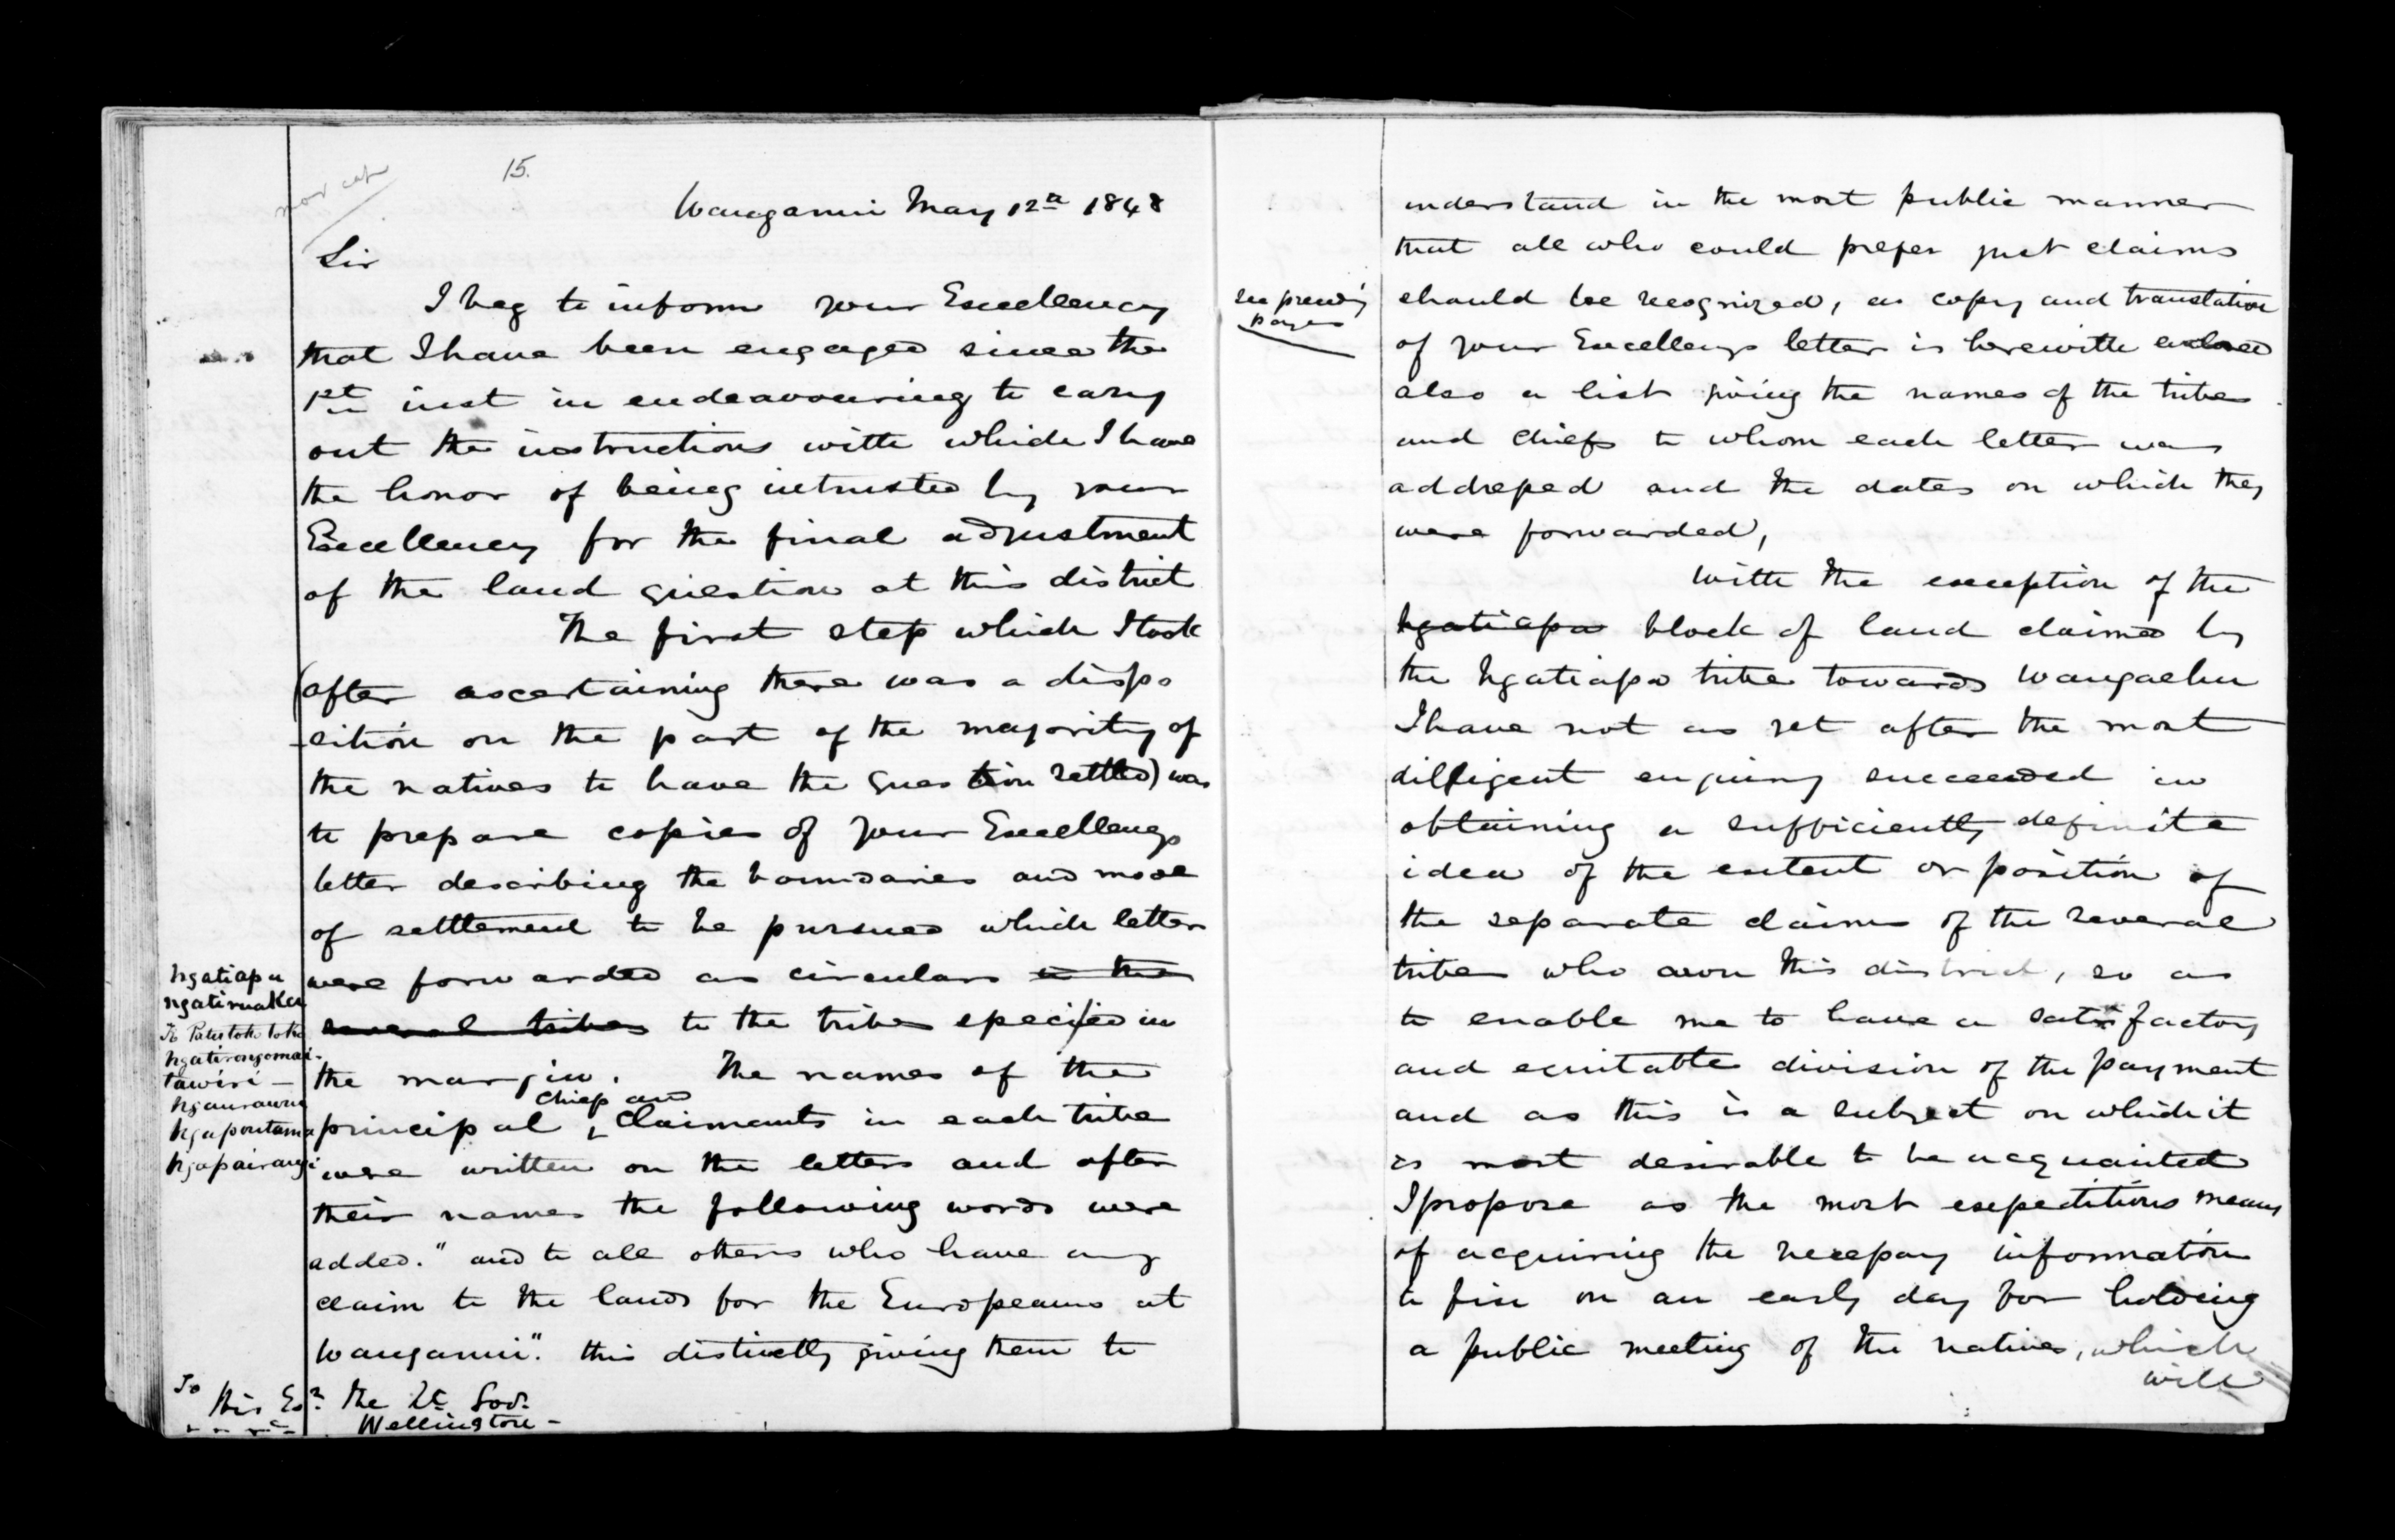 15.
Wanganui May 12th 1848
Sir
I beg to inform your Excellency
that I have been engaged since the
1st inst in endeavouring to carry
out the instructions with which I have
the honor of being intrusted by your
Excellency for the final adjustment
of the land question at this district
The first step which I took
(after ascertaining there was a dispo
-sition on the part of the majority of
the natives to have the question settled) was
to prepare copies of your Excellencys
letter describing the boundaries and mode
of settlement to be pursued which letters
were forwarded as circulars to the
several tribes to the tribes specified in
the margin. The names of the
chief and
principal claimants in each tribe
were written on the letters and after
their names the following words were
added. "and to all others who have any
claim to the lands for the Europeans at
Wanganui". this distinctly giving them to
Ngatiapa
Ngatiruaka
Ngatirongomai-
tawiri -
Ngaurauru
Ngapoutama
Ngapairangi
To
His Exy the Lt Govr
Wellington -
understand in the most public manner
that all who could prefer just claims
see preceding
pages
should be recognized, a copy and translation
of your Excellencys letter is herewith enclosed
also a list giving the names of the tribes
and chiefs to whom each letter was
addressed and the dates on which they
were forwarded,
With the exception of the
Ngatiapa block of land claimed by
the Ngatiapa tribe towards Wangaehu
I have not as yet after the most
dilligent enquiry succeeded in
obtaining a sufficiently definite
idea of the extent or position of
the separate claims of the several
tribes who own this district, so as
to enable me to have a satisfactory
and equitable division of the payment
and as this is a subject on which it
is most desirable to be acquainted
I propose as the most expeditious means
of acquiring the necessary information
to fix on an early day for holding
a public meeting of the natives, which
will